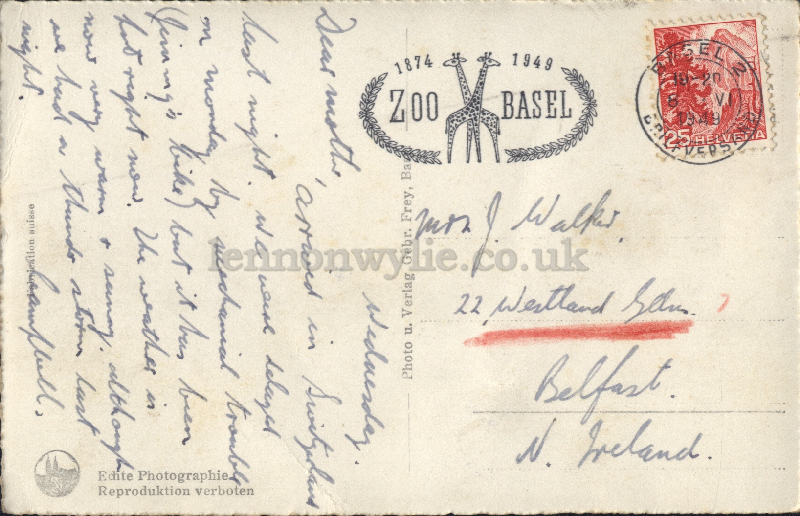 Wednesday.
Dear mother,
arrived in Switzerland
last night. we were delayed
on monday by mechanical trouble
(Jimmy's bike) but it has been
hot right now. The weather is
now very warm & sunny. although
we had a thunder storm last
night.
Campbell.
1874 1949
ZOO BASEL
BASEL 2
8 VI
1949
BRIEFVERSAND
25 HELVETIA
Mrs J. Walker.
22, Westland Gdns.
Belfast.
N. Ireland.
Photo u. Verlag Gebr. Frey, Ba
suisse
Edite Photographie
Reproduktion verboten
lennonwylie.co.uk